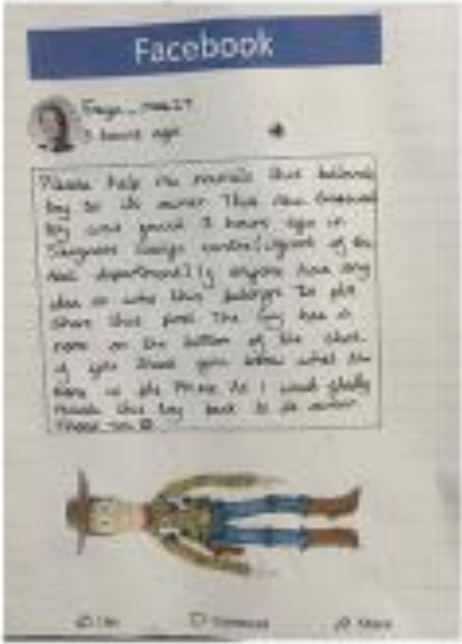 Facebook
3 hours ago
Please help me reunite this beloved
toy to its owner This
toy was found 3 hours ago in
centre (
department) If anyone has any
idea as who this belongs to pls
share this post The toy has a
name on the bottom of the shoe.
if you think you know what the
name is pls Me As I would gladly
this toy back to its owner
Thank you
Like
Comment
Share